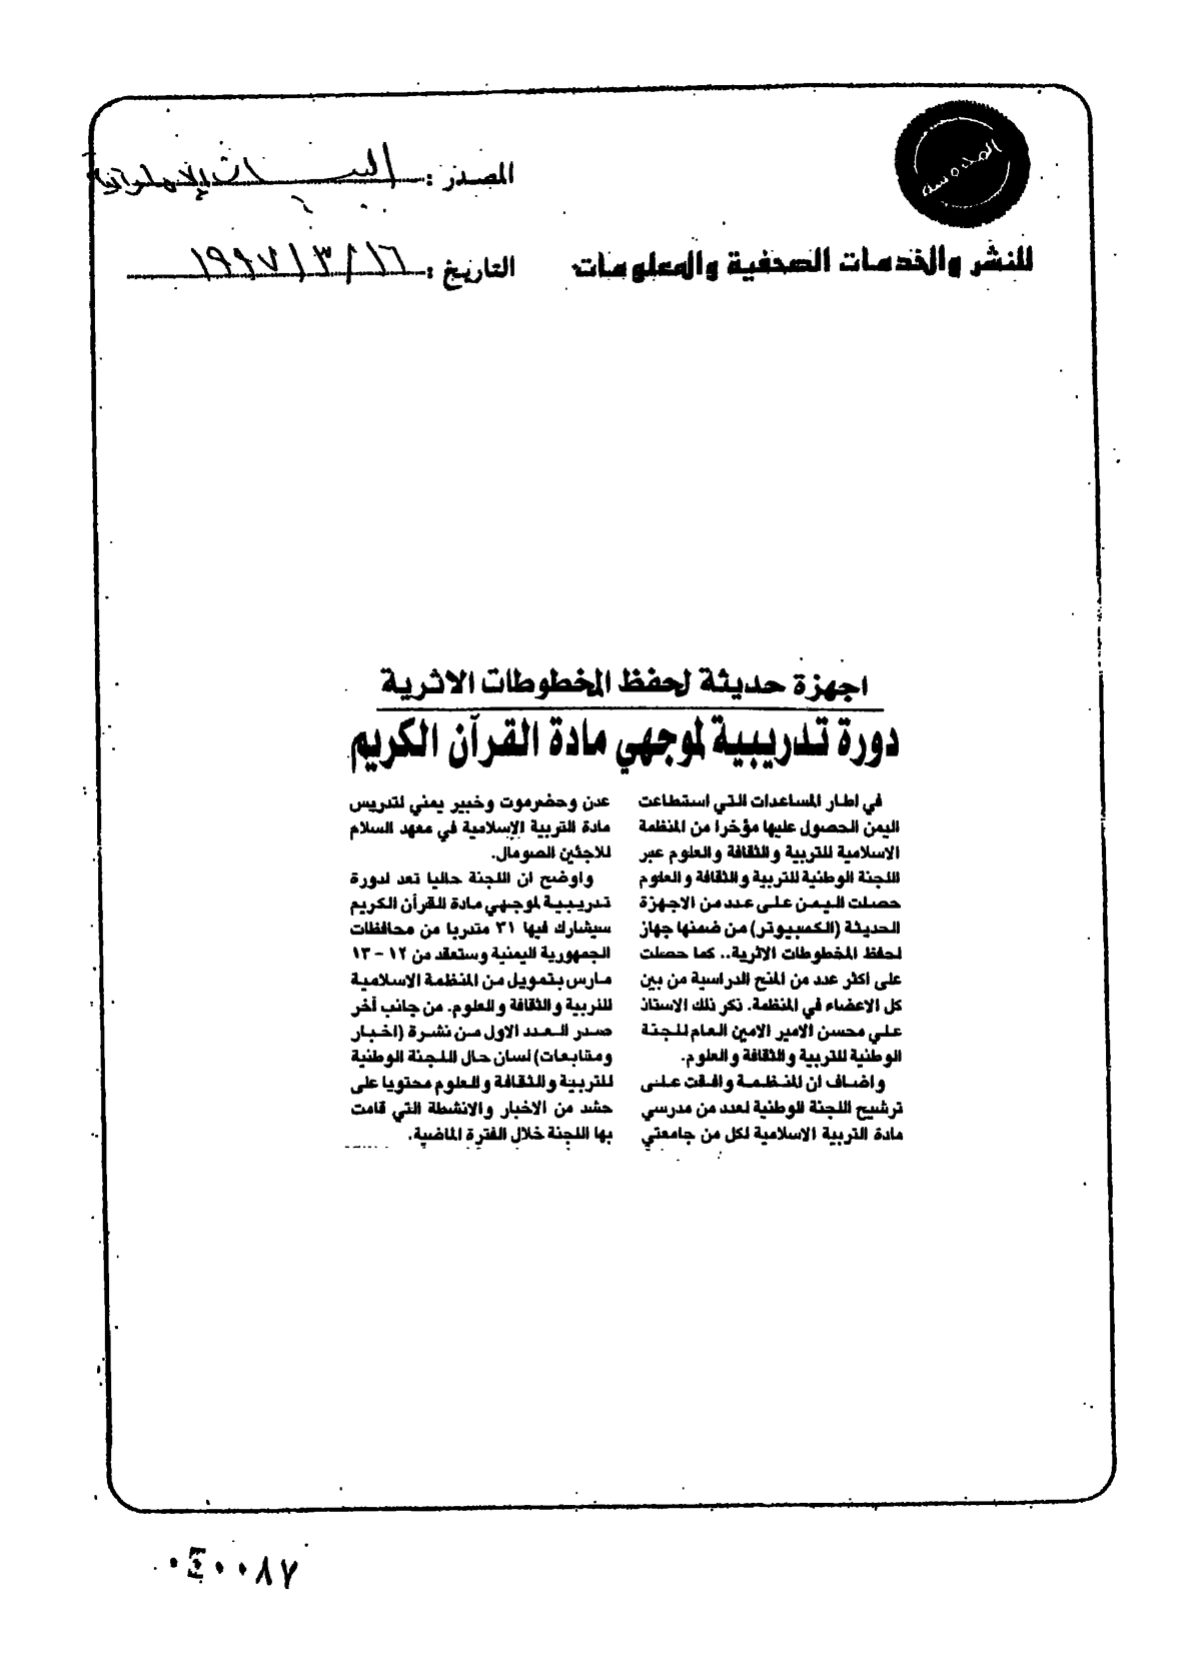 المصدر : البيان الإماراتية
للنشر والخدمات الصحفية والمعلومات
التاريخ : ١٦ / ٣ / ١٩٩٧
اجهزة حديثة لحفظ المخطوطات الاثرية
دورة تدريبية لموجهي مادة القرآن الكريم
في اطار المساعدات التي استطاعت
اليمن الحصول عليها مؤخرا من المنظمة
الاسلامية للتربية والثقافة والعلوم عبر
اللجنة الوطنية للتربية والثقافة والعلوم
حصلت اليمن على عدد من الاجهزة
الحديثة (الكمبيوتر) من ضمنها جهاز
لحفظ المخطوطات الاثرية.. كما حصلت
على اكثر عدد من المنح الدراسية من بين
كل الاعضاء في المنظمة. ذكر ذلك الاستاذ
علي محسن الامير الامين العام للجنة
الوطنية للتربية والثقافة والعلوم.
واضاف ان المنظمة وافقت على
ترشيح اللجنة الوطنية لعدد من مدرسي
مادة التربية الاسلامية لكل من جامعتي
عدن وحضرموت وخبير يمني لتدريس
مادة التربية الإسلامية في معهد السلام
للاجئين الصومال.
واوضح ان اللجنة حاليا تعد لدورة
تدريبية لموجهي مادة القرآن الكريم
سيشارك فيها ٣١ متدربا من محافظات
الجمهورية اليمنية وستعقد من ١٢ - ١٣
مارس بتمويل من المنظمة الاسلامية
للتربية والثقافة والعلوم. من جانب آخر
صدر العدد الاول من نشرة (اخبار
ومتابعات) لسان حال اللجنة الوطنية
للتربية والثقافة والعلوم محتويا على
حشد من الاخبار والانشطة التي قامت
بها اللجنة خلال الفترة الماضية.